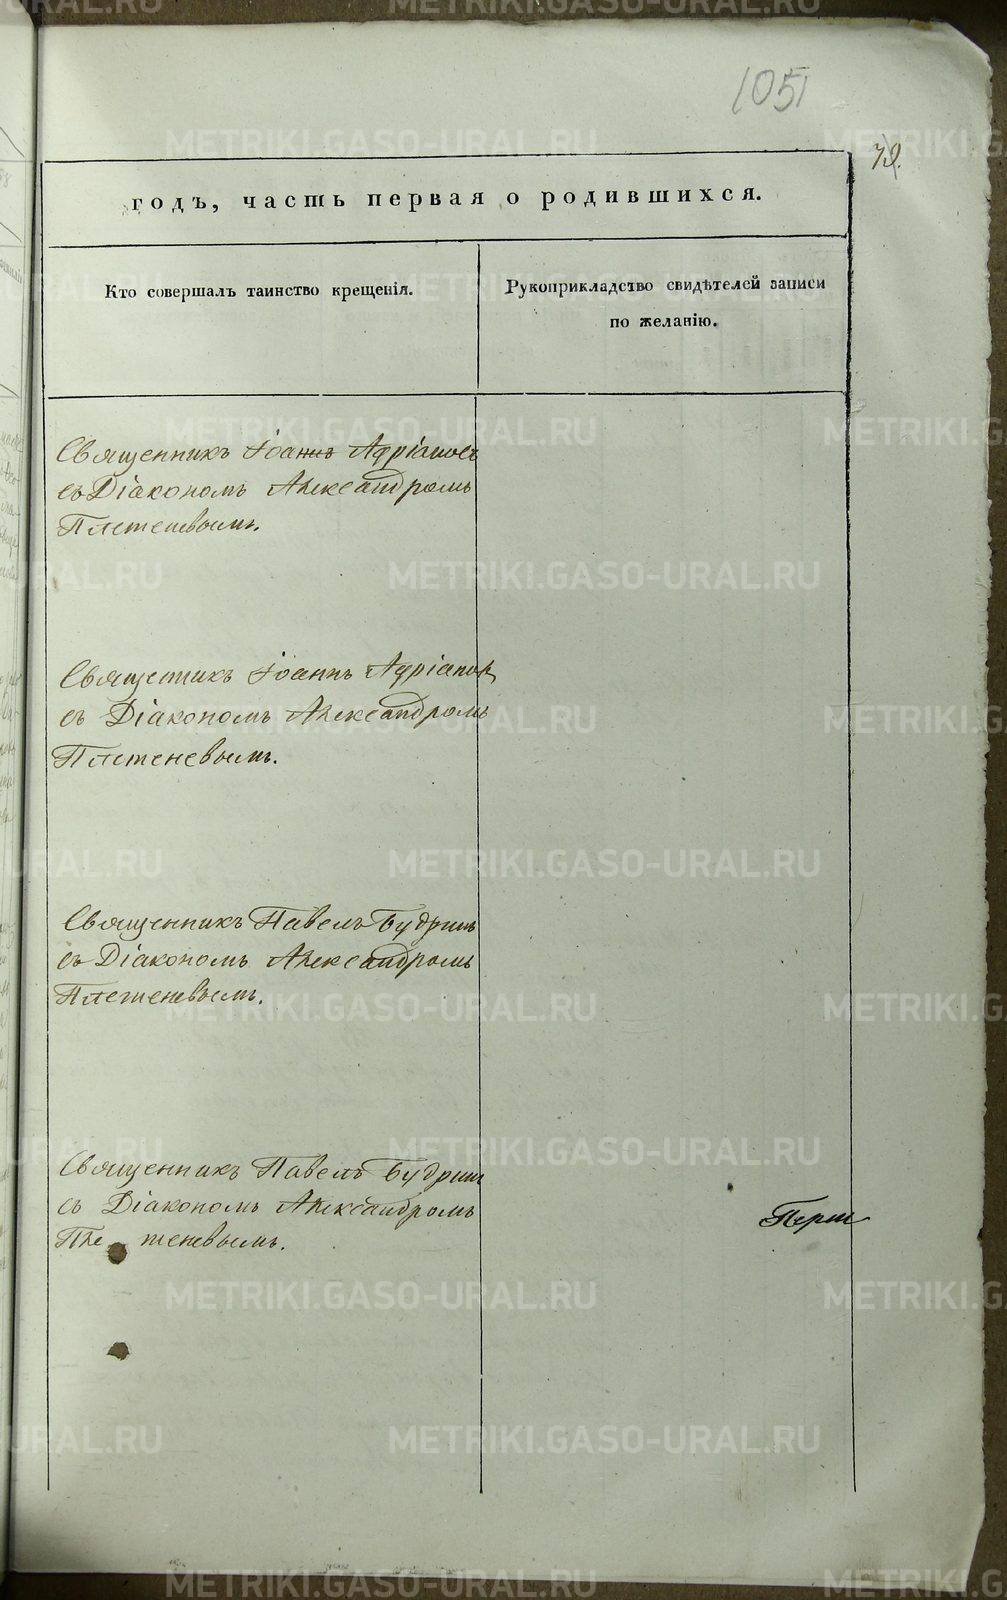 1051
79.
годъ, часть первая о родившихся.
Кто совершалъ таинство крещенія.
Рукоприкладство свидѣтелей записи
по желанію.
Священникъ Іоаннъ Адріановъ
съ Діакономъ Александромъ
Плетеневымъ.
Священникъ Іоаннъ Адріановъ
съ Діакономъ Александромъ
Плетеневымъ.
Священникъ Павелъ Будринъ
съ Діакономъ Александромъ
Плетеневымъ.
Священникъ Павелъ Будринъ
съ Діакономъ Александромъ
Плетеневымъ.
METRIKI.GASO-URAL.RU